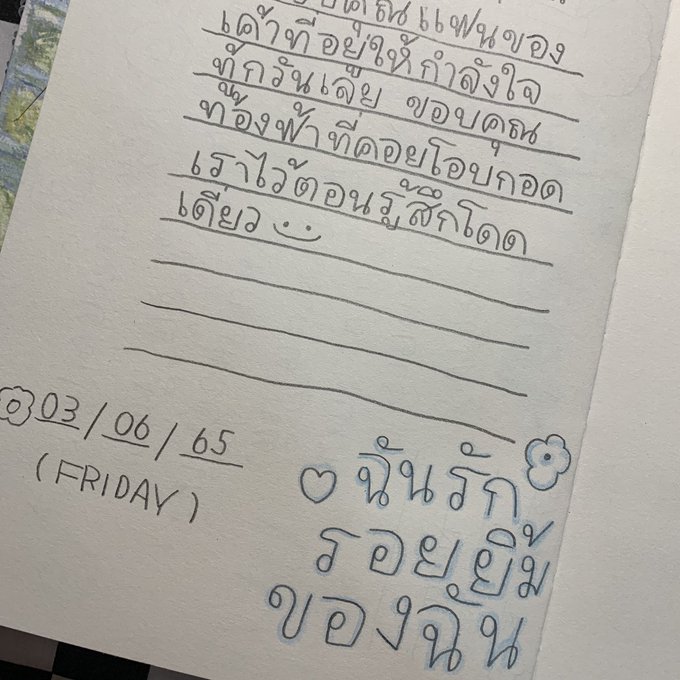 คุณแฟนของ
เค้าที่อยู่ให้กำลังใจ
ทุ้กวันเลย ขอบคุณ
ท้องฟ้าที่คอยโอบกอด
เราไว้ตอนรู้สึกโดด
เดี่ยว
03/06/65
(FRIDAY)
ฉันรัก
รอยยิ้ม
ของฉัน